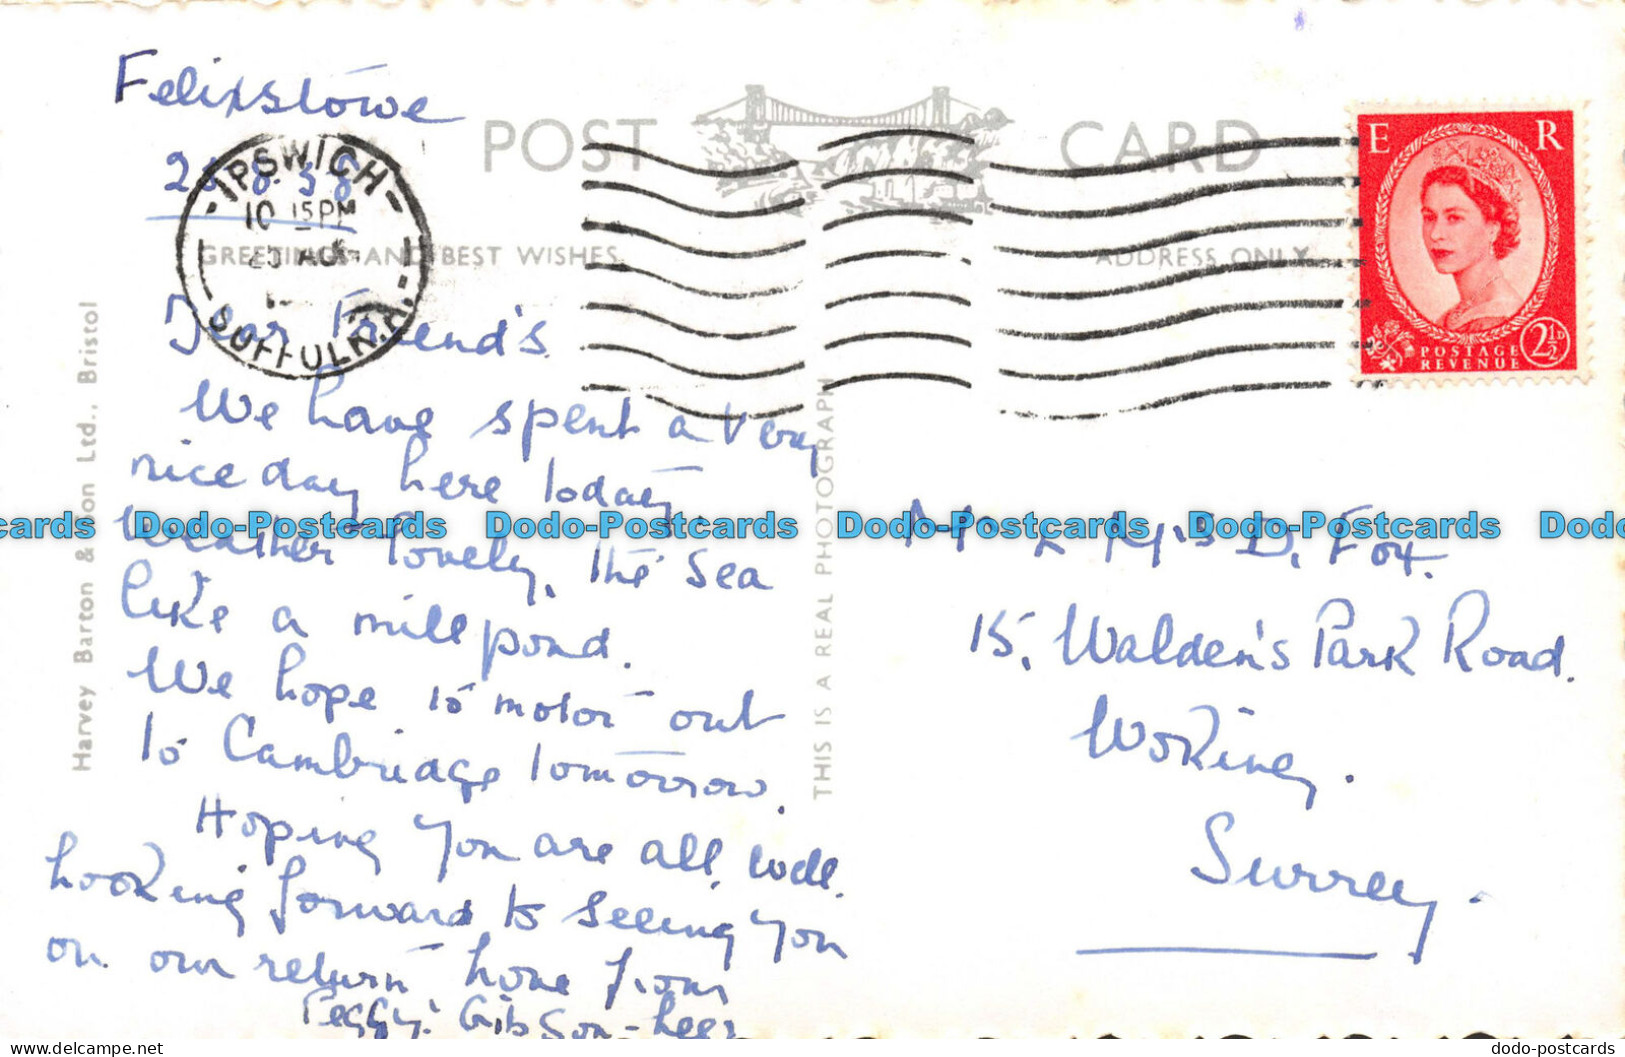 Felixstowe
POST CARD
E R
IPSWICH
10 15PM
AUG
SUFFOLK
GREETINGS AND BEST WISHES
ADDRESS ONLY
POSTAGE 2½D
REVENUE
Dear Friend's
We have spent a very
nice day here today.
Weather lovely, the Sea
like a mill pond.
We hope to motor out
to Cambridge tomorrow.
Hoping you are all well.
Looking forward to seeing you
on our return home from
Peggy. Gibson-
Mr & Mrs D. Fox.
15, Walden's Park Road.
Woking.
Surrey.
Harvey Barton & Son Ltd., Bristol
THIS IS A REAL PHOTOGRAPH
cards Dodo-Postcards Dodo-Postcards Dodo-Postcards Dodo-Postcards Dodo
delcampe.net
dodo-postcards